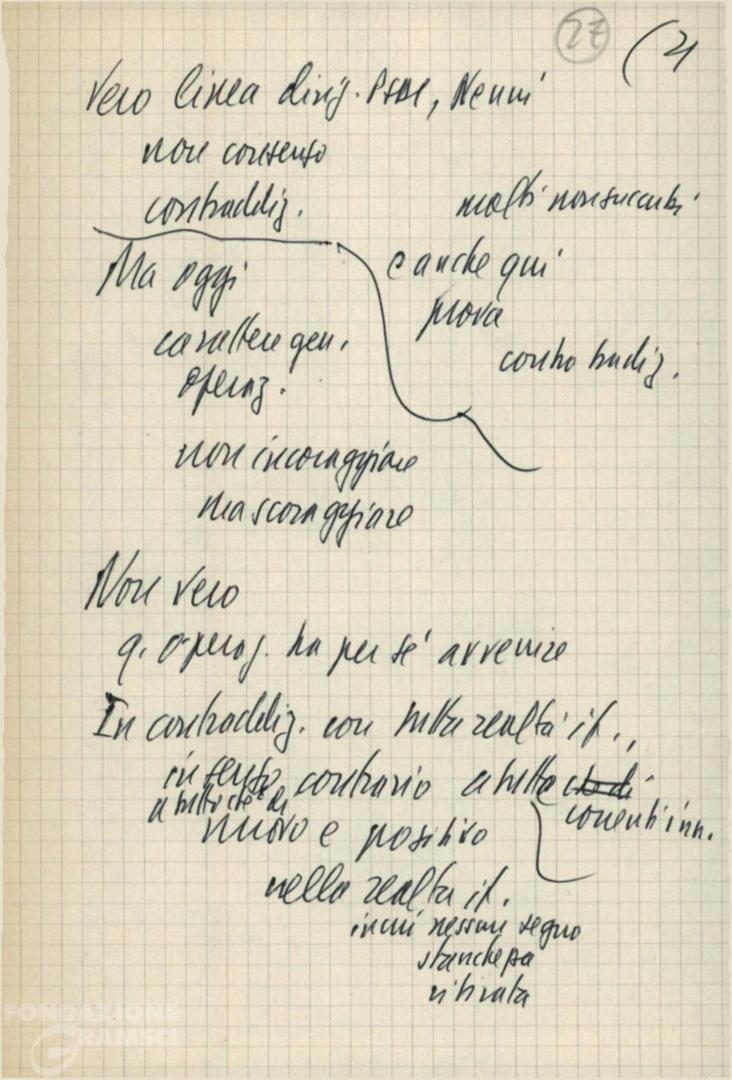 27 (2
Vero linea dirig. PSDI, Nenni
non consenso
contraddiz.
molti non succubi
e anche qui
prova
contraddiz.
Ma oggi
carattere gen.
operaz.
non incoraggiare
ma scoraggiare
Non vero
q. operaz. ha per sé avvenire
In contraddiz. con tutta realtà it.,
in senso contrario a tutte
correnti inn.
a tutto ciò che di
nuovo e positivo
nella realtà it.
in cui nessun segno
stanchezza
ritirata
FONDAZIONE
GRAMSCI